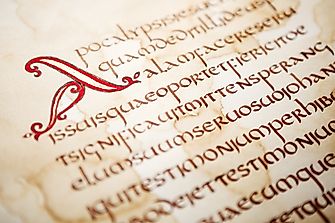 Apocalypsisiesu
quamdeditilliideusp
alamfacereserui
issuisquaeoportetfiericitoe
tsignificauitmittensperang
elumsuumseruosuoiohan
quitestimoniumperhib
odeiettestimoniu
quaecumqu